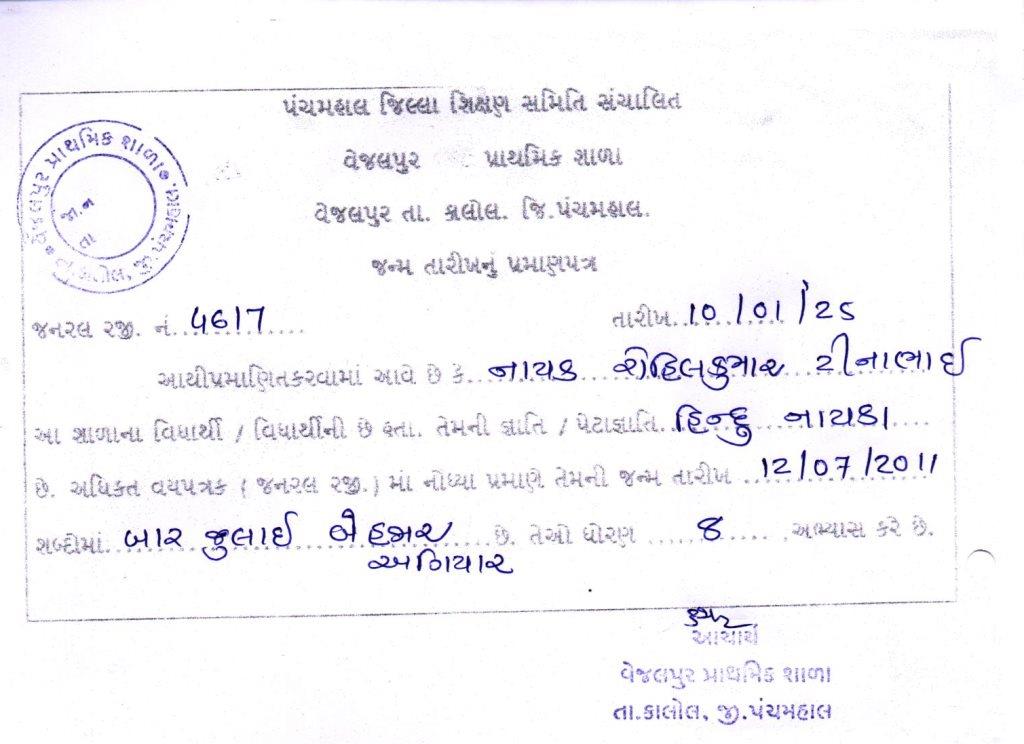 પંચમહાલ જિલ્લા શિક્ષણ સમિતિ સંચાલિત
વેજલપુર પ્રાથમિક શાળા
વેજલપુર તા. કાલોલ. જિ.પંચમહાલ.
જન્મ તારીખનું પ્રમાણપત્ર
વેજલપુર પ્રાથમિક શાળા
તા.કાલોલ, જી.પંચમહાલ
જા.ન
તા
જનરલ રજી. નં. 4617 તારીખ. 10/01/25
આથીપ્રમાણિતકરવામાં આવે છે કે. નાયક રોહિલકુમાર ટીનાભાઈ
આ શાળાના વિધાર્થી / વિધાર્થીની છે હતા. તેમની જ્ઞાતિ / પેટાજ્ઞાતિ. હિન્દુ નાયકા
છે. અધિકત વયપત્રક ( જનરલ રજી. ) માં નોધ્યા પ્રમાણે તેમની જન્મ તારીખ 12/07/2011
શબ્દોમાં. બાર જુલાઈ બે હજાર છે. તેઓ ધોરણ 8 અભ્યાસ કરે છે.
અગિયાર
આચાર્ય
વેજલપુર પ્રાથમિક શાળા
તા.કાલોલ, જી.પંચમહાલ